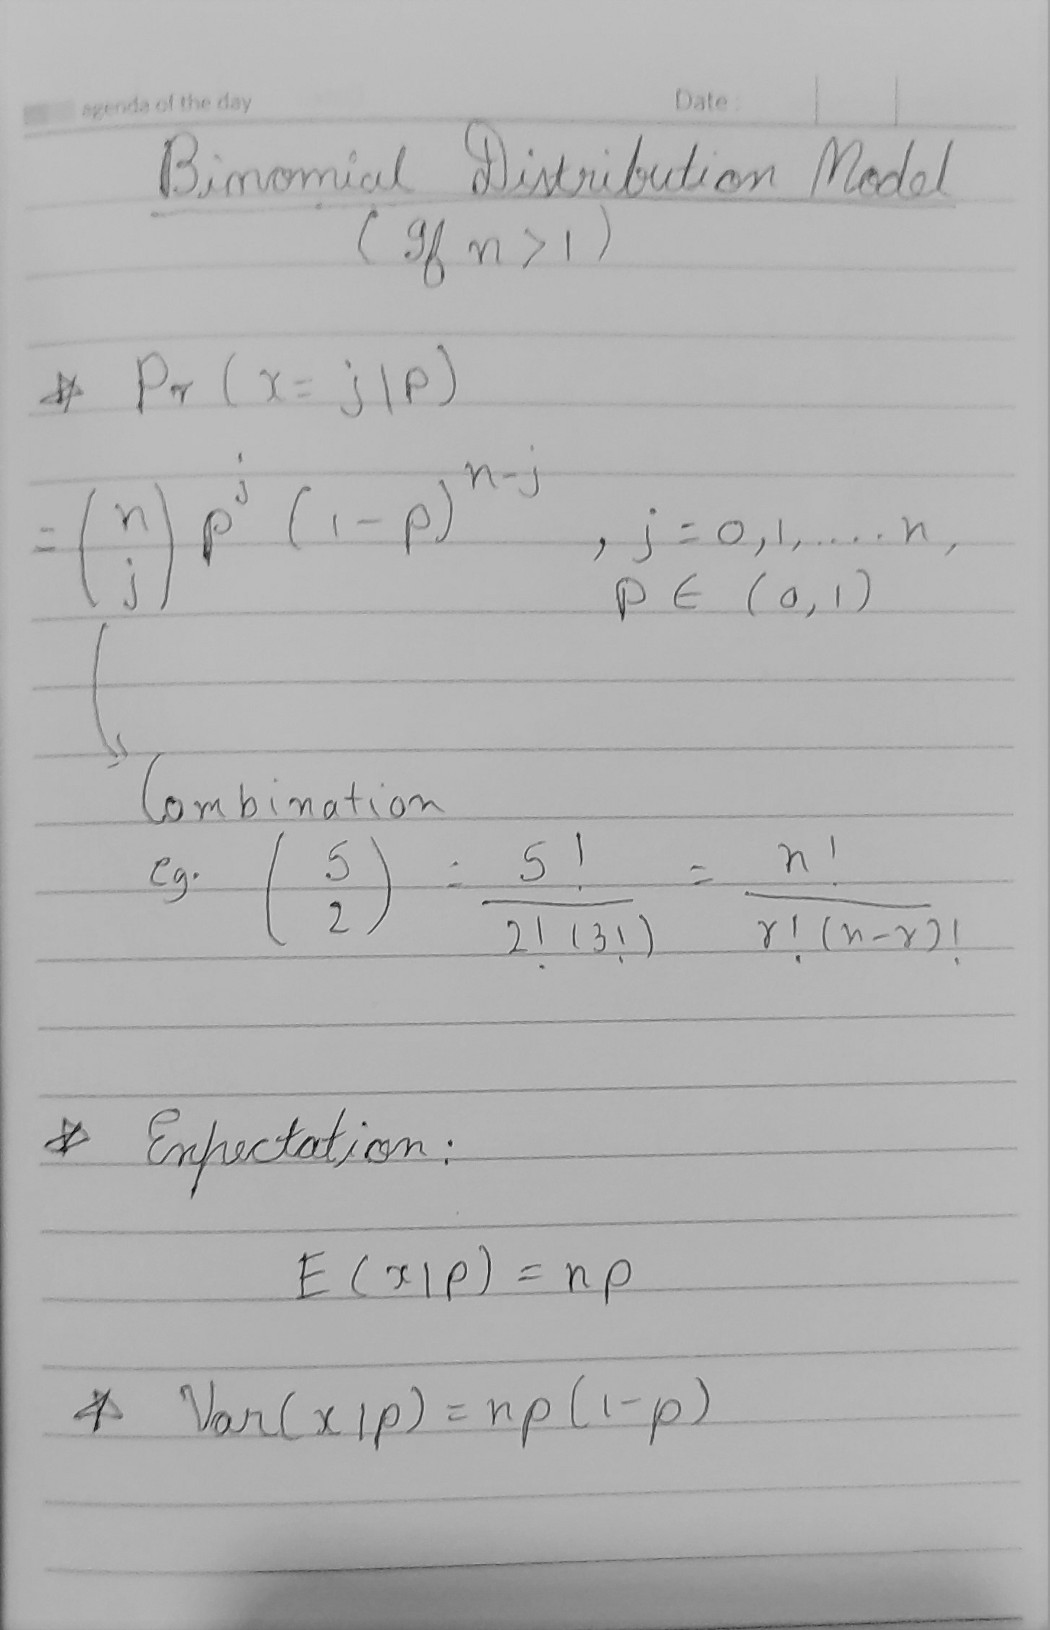 agenda of the day Date:
Binomial Distribution Model
(If n>1)
* Pr (x= j|p)
= (n j) p^j (1-p)^n-j , j=0,1,....n,
p ∈ (0,1)
Combination
eg. (5 2) = 5! / 2! (3!) = n! / r! (n-r)!
* Expectation:
E(x|p) = np
* Var(x|p) = np(1-p)